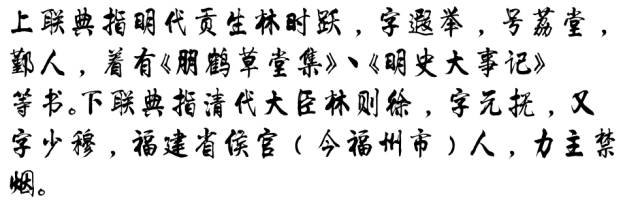 上联典指明代贡生林时跃，字遐举，号荔堂，
鄞人，着有《朋鹤草堂集》、《明史大事记》
等书。下联典指清代大臣林则徐，字元抚，又
字少穆，福建省侯官（今福州市）人，力主禁
烟。